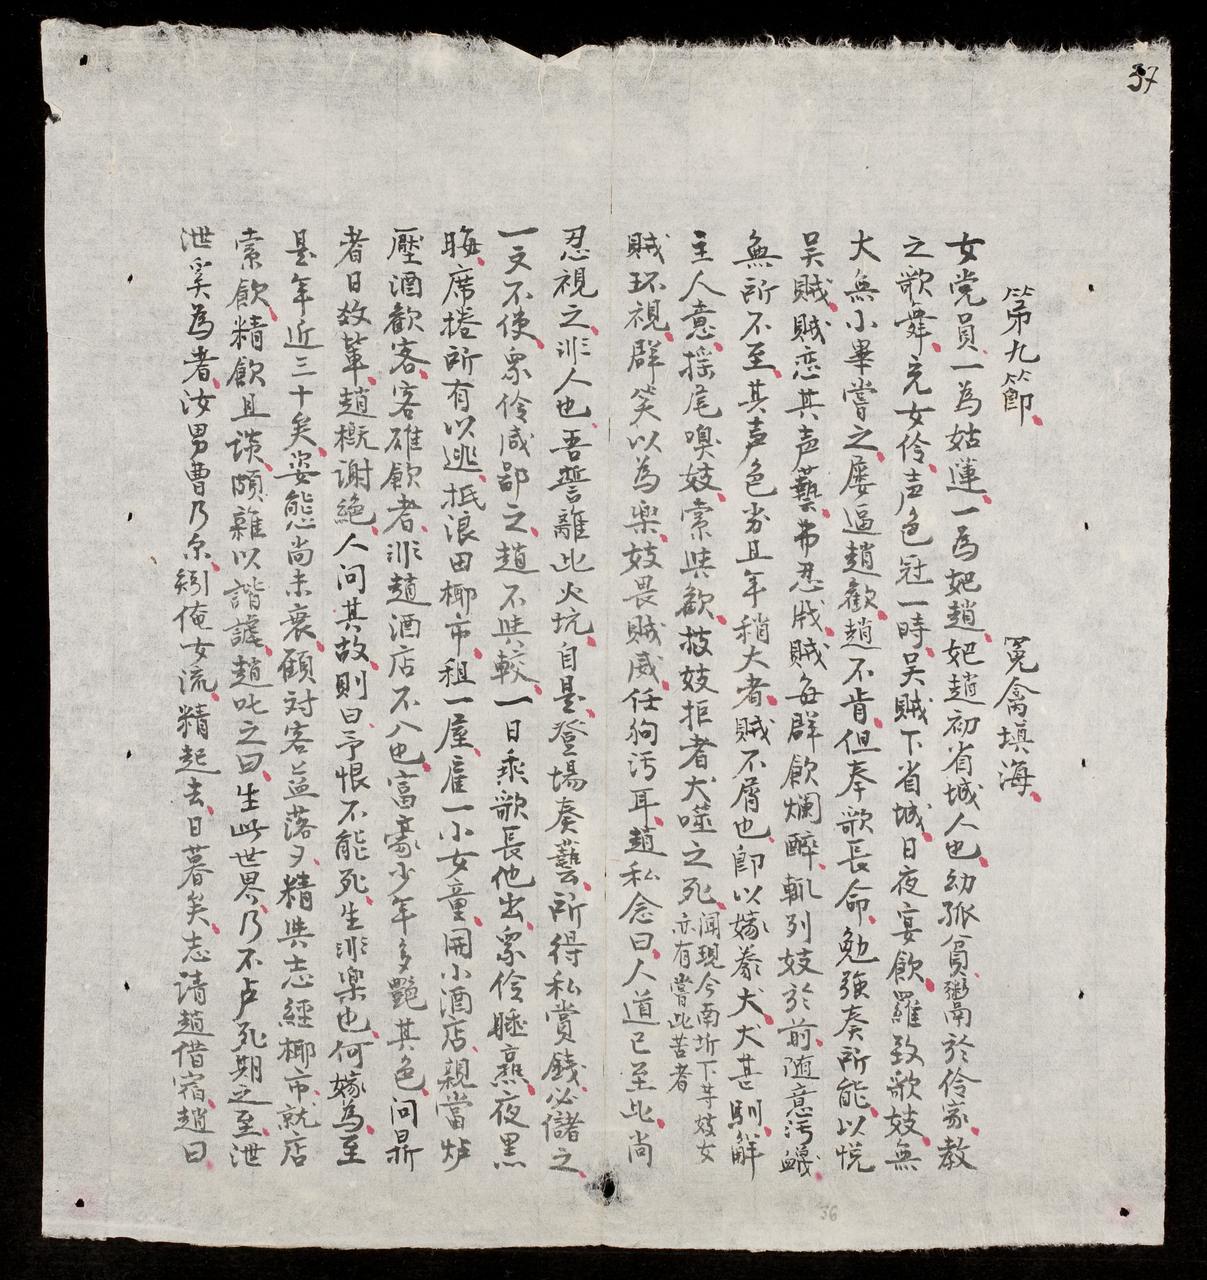 37
第九節 冤禽填海
女党員一為姑蓮一為妑趙妑趙初省城人也幼孤貧鬻於伶家教
之歌舞充女伶声色冠一時吳賊下省城日夜宴飲羅致歌妓無
大無小畢嘗之屡逼趙歡趙不肯但奉歌長命勉強奏所能以悅
吳賊賊恋其声藝弗忍戕賊每群飲爛醉輒列妓於前随意污衊
無所不至其声色劣且年稍大者賊不屑也即以嫁豢犬犬甚馴解
主人意揺尾嗅妓索與歡技妓拒者犬噬之死 闻現今南圻下等妓女亦有嘗此苦者
賊环視群笑以為楽妓畏賊威任狗污耳趙私念曰人道已至此尚
忍視之非人也吾誓離此火坑自是登場奏藝所得私賞錢必儲之
一文不使衆伶咸鄙之趙不與較一日乘歌長他出衆伶睡熹夜黑
晦席捲所有以逃抵浪田椰市租一屋雇一小女童開小酒店親當炉
壓酒歡客客碓飲者非趙酒店不入也富豪少年多艷其色问鼎
者日数輩趙概谢絶人问其故則曰予恨不能死生非楽也何嫁為至
是年近三十矣姿態尚未衰顧対客益落夕精與志經椰市就店
索飲精飲且谈頗雜以諧謔趙叱之曰生此世界乃不卢死期之至泄
泄奚為者汝男曹乃尔矧俺女流精起去日暮矣志请趙借宿趙曰
36